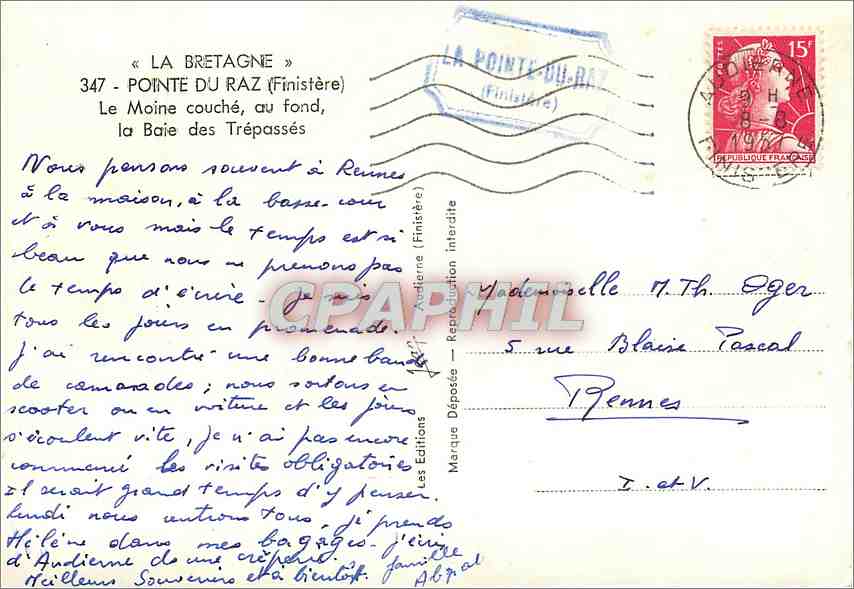 « LA BRETAGNE »
347 - POINTE DU RAZ (Finistère)
Le Moine couché, au fond,
la Baie des Trépassés
Nous pensons souvent à Rennes
à la maison, à la basse-cour
et à vous mais le temps est si
beau que nous ne prenons pas
le temps d'écrire - je suis
tous les jours en promenade.
J'ai rencontré une bonne bande
de camarades ; nous sortons en
scooter ou en voiture et les jours
s'écoulent vite, je n'ai pas encore
commencé les visites obligatoires
il serait grand temps d'y penser.
lundi nous rentrons tous, je prends
Hélène dans mes bagages - j'écris
d'Audierne ds une crêperie.
Meilleurs Souvenirs et à bientôt. famille
LA POINTE-DU-RAZ
(Finistère)
15F
POSTES
REPUBLIQUE FRANÇAISE
AUDIERNE
9 H
8 - 8
1957
FINISTERE
Les Editions Jos Audierne (Finistère)
Marque Déposée — Reproduction interdite
CPAPHIL
Mademoiselle M. Th. Oger
5 rue Blaise Pascal
Rennes
I. et V.